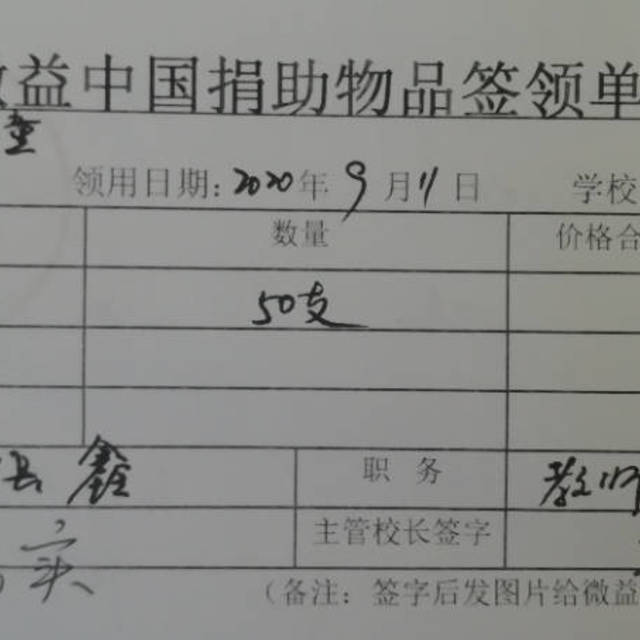 微益中国捐助物品签领单
领用日期: 2020年 9月11日 学校
数量 价格合
50支
鑫 职 务 教师
实 主管校长签字
(备注: 签字后发图片给微益